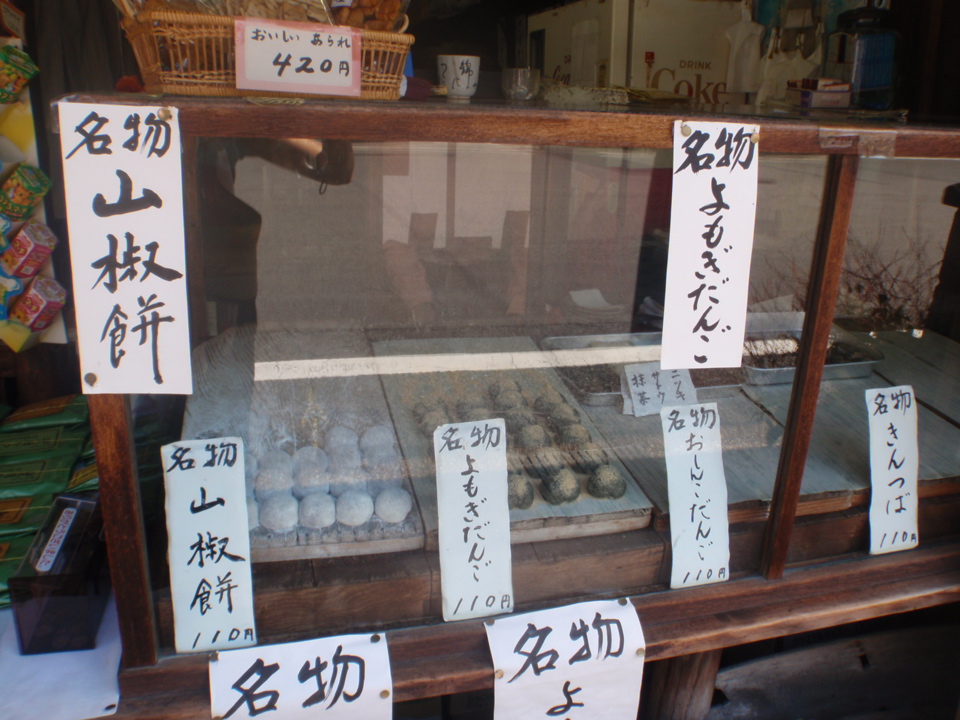 おいしい あられ
420円
DRINK
Coke
名物
山椒餅
名物
よもぎだんご
ニッキ
抹茶
名物
山椒餅
110円
名物
よもぎだんご
110円
名物
おしんこだんご
110円
名物
きんつば
110円
名物
名物
よ